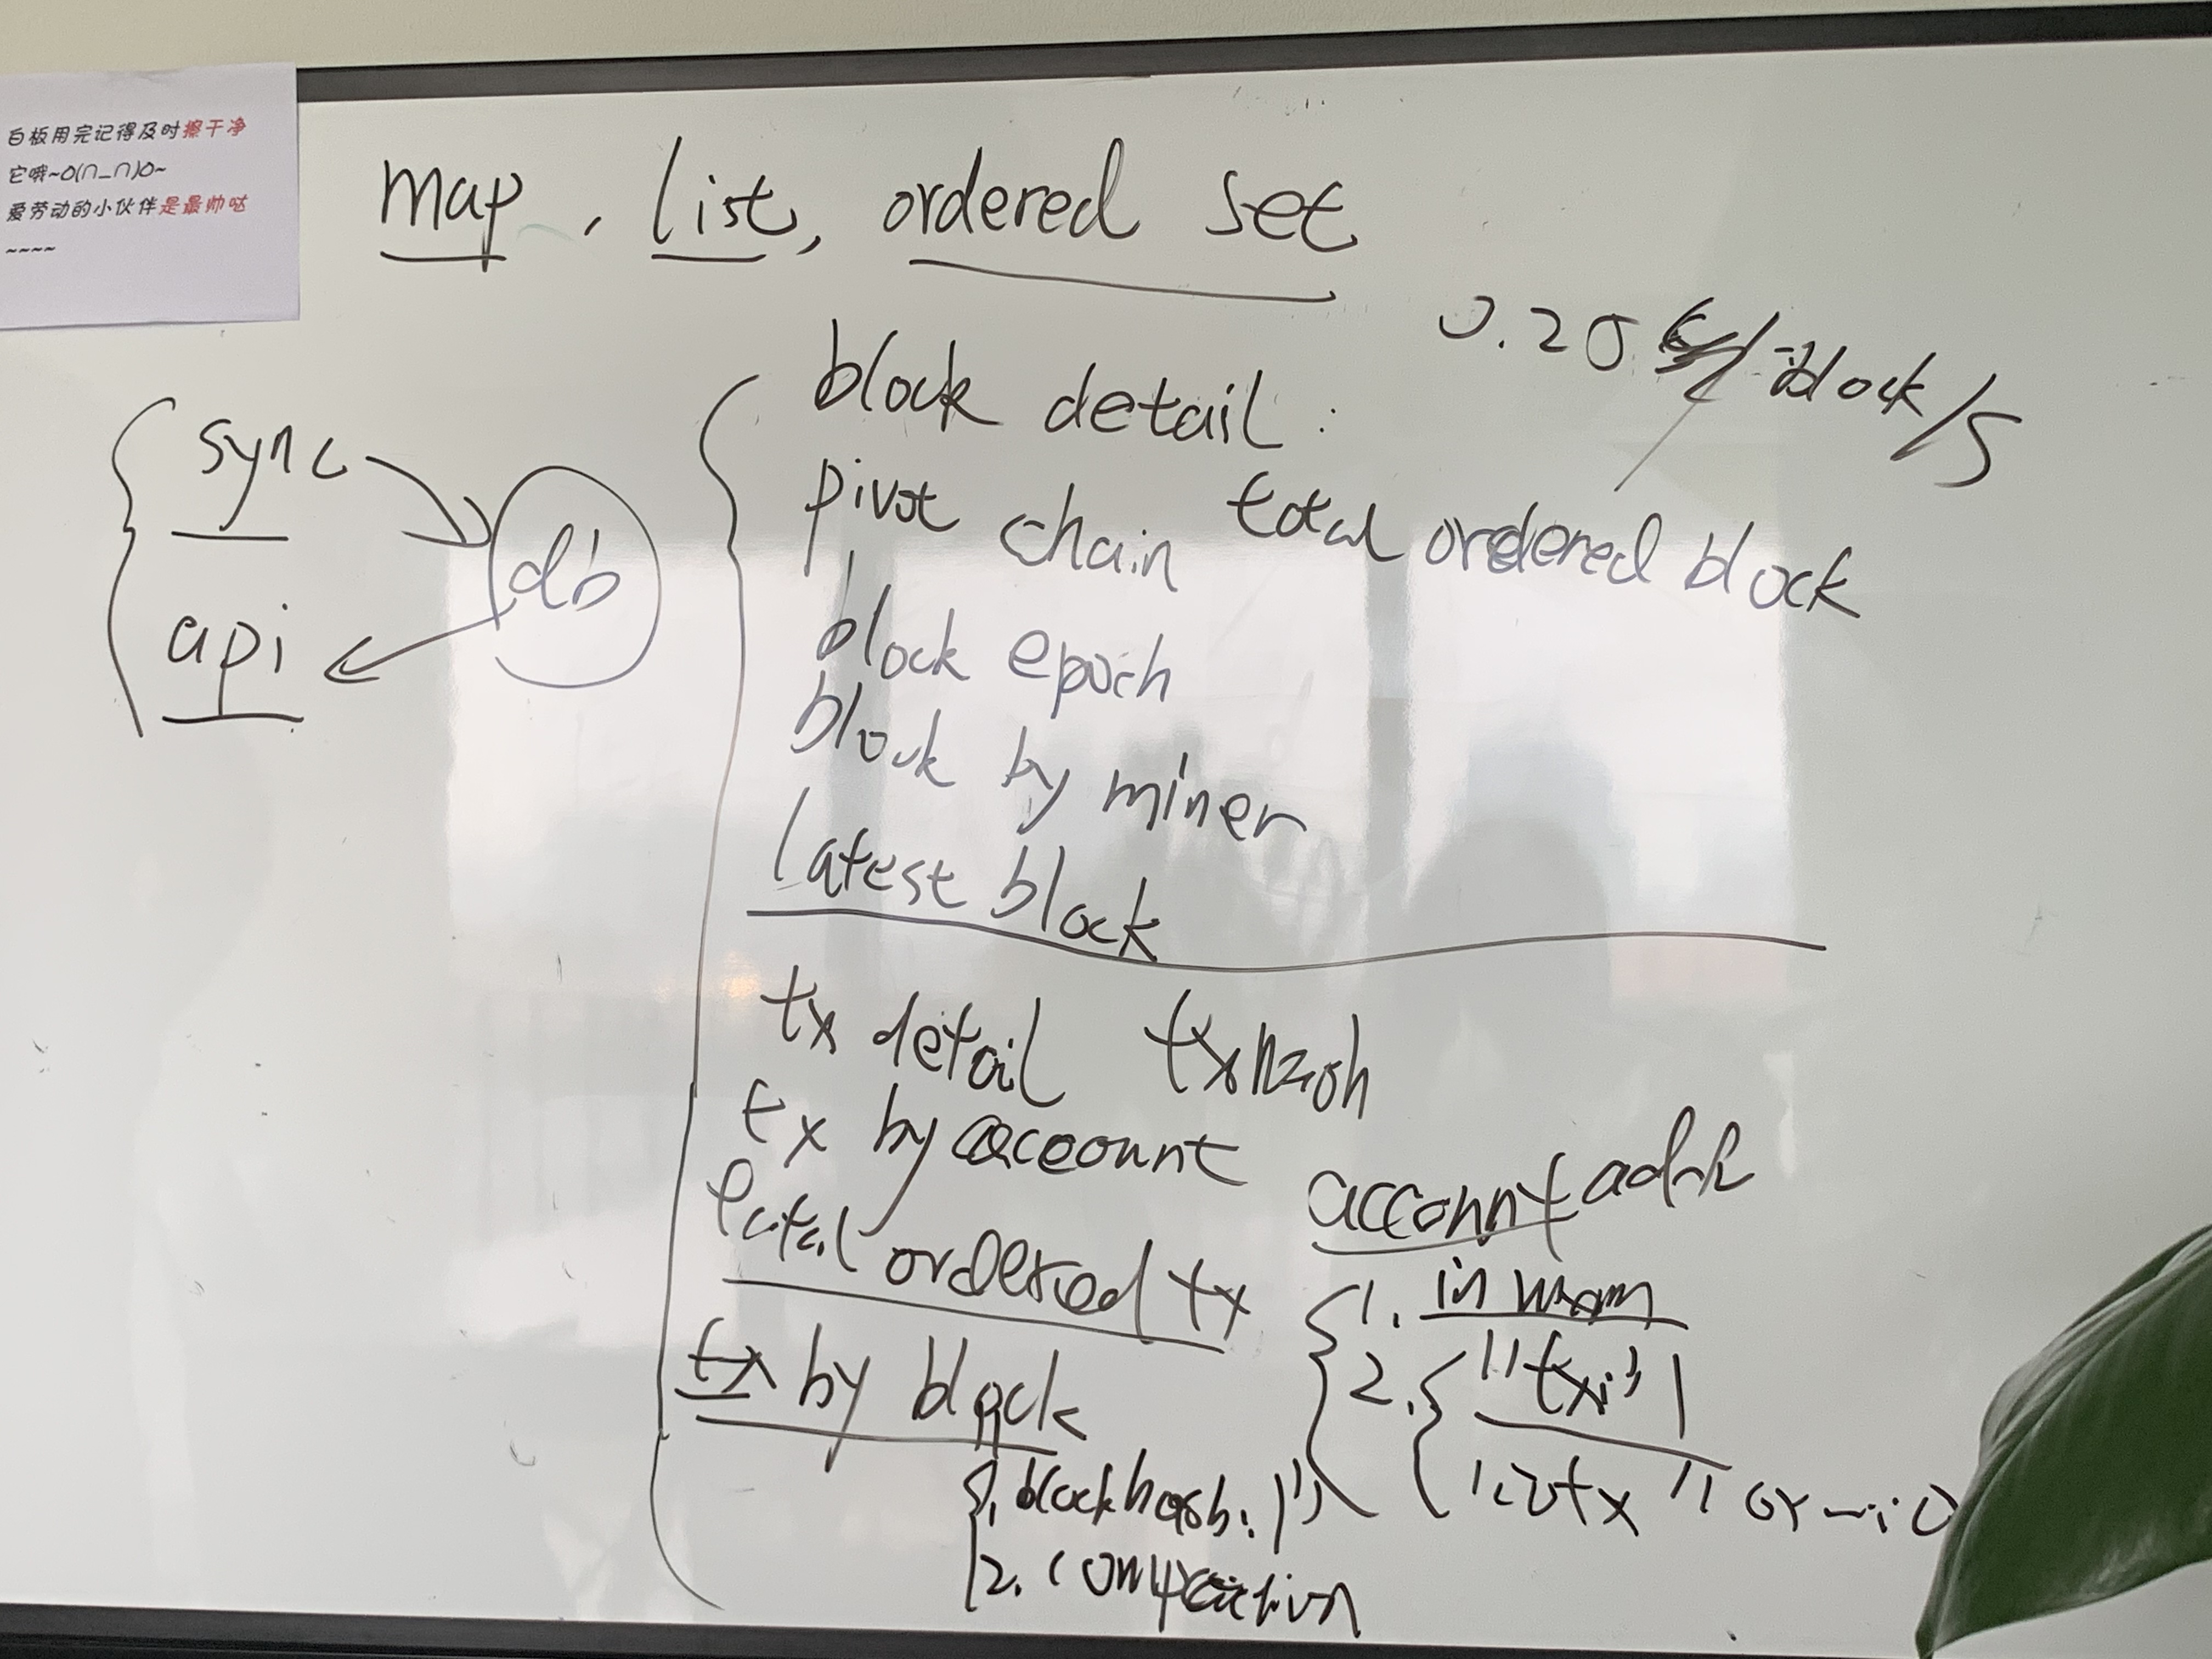 白板用完记得及时擦干净
它哦~O(∩_∩)O~
爱劳动的小伙伴是最帅哒
~~~~
map, list, ordered set
0.25 block/s
sync
db
api
block detail:
pivot chain total ordered block
block epoch
block by miner
latest block
tx detail tx hash
tx by account
total ordered tx
account addr
1. in mem
2. "txi" |
tx by block
1. blockhash:
2. compaction